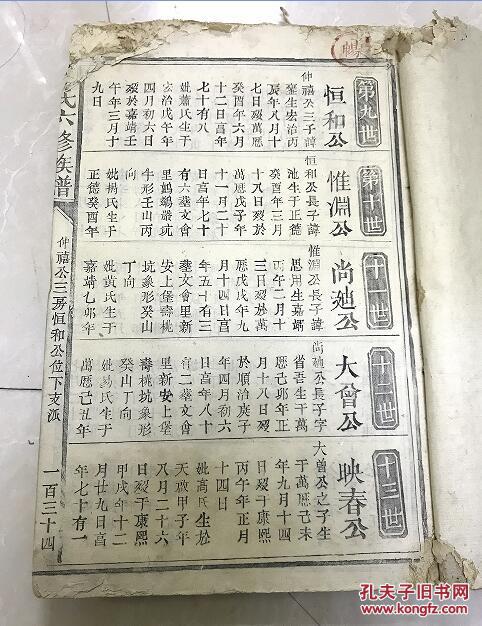 第九世
恒和公
仲禧公三子諱
葦生宏治丙
辰年八月十
七日歿萬厯
癸酉年六月
十二日高年
七十有八
妣蕭氏生于
玄治戊午年
四月初六日
歿於嘉靖壬
午年三月十
九日
第十世
惟淵公
恒和公長子諱
池生于正德
癸酉年三月
十八日歿於
萬厯戊子年
十一月二十
日高年七十
有六塟文會
里鷓鴣叢坑
牛形壬山丙
向
妣楊氏生于
正德癸酉年
十一世
尚廸公
惟淵公長子諱
思用生嘉靖
丙午二月十
三日歿於萬
厯戊戌年九
月十四日亯
年五十有三
塟文會里新
安上堡壽桃
坑象形癸山
丁向
妣黄氏生于
嘉靖乙卯年
十二世
大曾公
尚廸公長子字
省吾生于萬
厯己卯年正
月十八日歿
於順治庚子
年四月初六
日高年八十
有二塟文會
里新安上堡
壽桃坑象形
癸山丁向
妣易氏生于
萬厯己丑年
十三世
映春公
大曾公之子生
于萬厯己未
年九月十四
日歿于康熙
丙午年正月
十四日
妣高氏生於
天啟甲子年
八月二十六
日歿于康熙
甲戌年十二
月廿九日高
年七十有一
氏六修族譜
仲禧公三房恒和公位下支派
一百三十四
暢
孔夫子旧书网
KONGFZ.COM